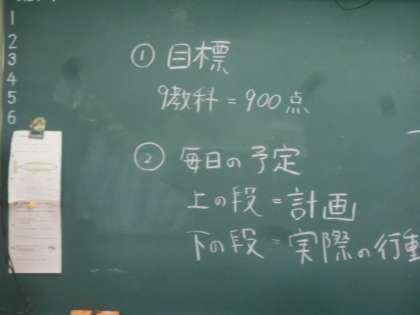 1
2
3
4
5
6
① 目標
9教科=900点
② 毎日の予定
上の段=計画
下の段=実際の行動